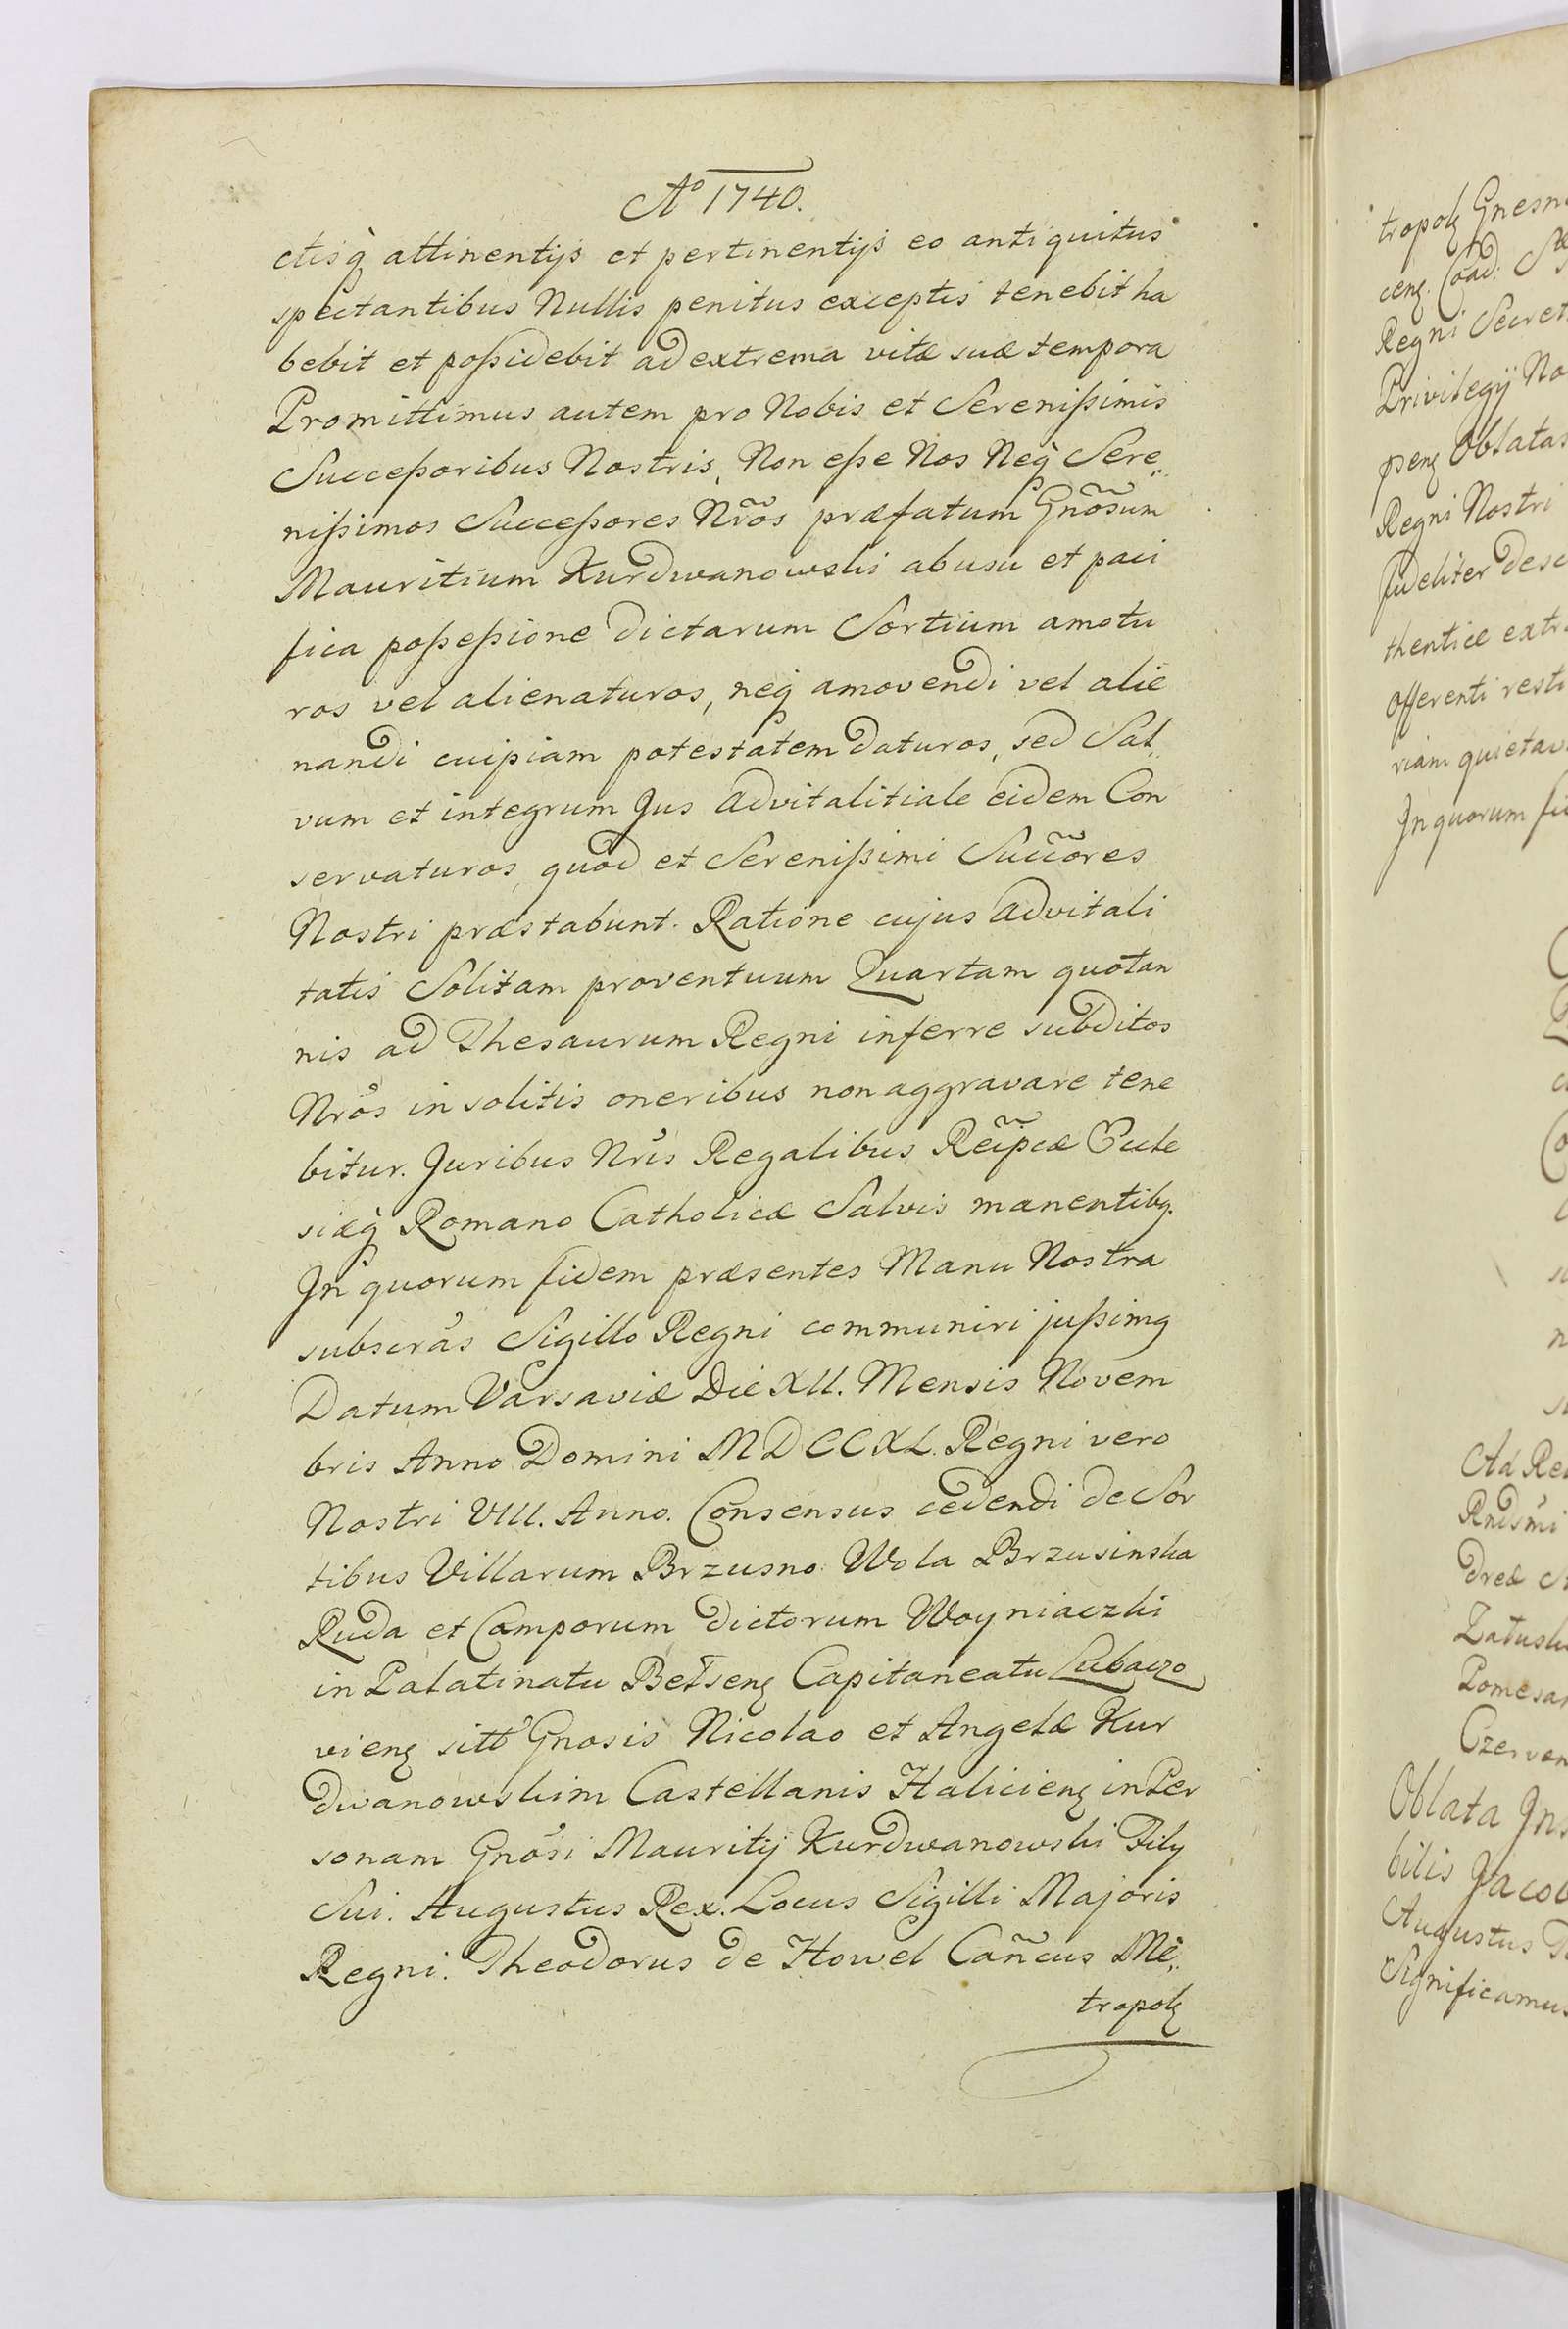 Aº 1740.
ctisq̀ attinentijs et pertinentijs eo antiquitus
spectantibus Nullis penitus exceptis tenebit ha
bebit et poßidebit ad extrema vitæ suæ tempora
Promittimus autem pro Nobis et Serenißimis
Succeßoribus Nostris, Non eße Nos Neq̀ Sere„
nißimos Succeßores Nr̃õs præfatum Gñõsum
Mauritium Kurdwanowski ab usu et paci
fica poßeßione dictarum Sortium amotu
ros vel alienaturos, neq̀ amovendi vel alie
nandi cuipiam potestatem daturos, sed Sal„
vum et integrum Jus Advitalitiale eidem Con
servaturos, quod et Serenißimi Succ̃õres
Nostri præstabunt. Ratione cujus Advitali
tatis Solitam proventuum Quartam quotan
nis ad Thesaurum Regni inferre subditos
Nrõs insolitis oneribus non aggravare tene
bitur. Juribus Nrĩs Regalibus Reĩpcæ Eccle
siæq̀ Romano Catholicæ Salvis manentibq.
Jn quorum fidem præsentes Manu Nostra
subscrãs Sigillo Regni communiri jußimq
Datum Varsaviæ Die XII. Mensis Novem
bris Anno Domini MDCCXL. Regni vero
Nostri VIII. Anno. Consensus cedendi de Sor
tibus Villarum Brzusno Wola Brzusinska
Ruda et Camporum dictorum Woyniaczki
in Palatinatu Belsenȝ Capitaneatu Lubaczo
vienȝ sittˢ Gnosis Nicolao et Angelæ Kur
dwanowskim Castellanis Halicienȝ in Per
sonam Gnõsi Mauritij Kurdwanowski Filij
Sui. Augustus Rex. Locus Sigilli Majoris
Regni. Theodorus de Howel Cañcus Me„
tropolȝ
tropolȝ Gnesn
cenȝ. Coad:
Regni Secret
Privilegij No
psenȝ Oblatas
Regni Nostri
fideliter desc
thentice extr
Offerenti resti
riam quietav
Jn quorum fi
Ad Re
Rndsmi
dreæ
Załusk
Pomesan
Czerven
Oblata Jns
bilis Jacob
Augustus
Significamus